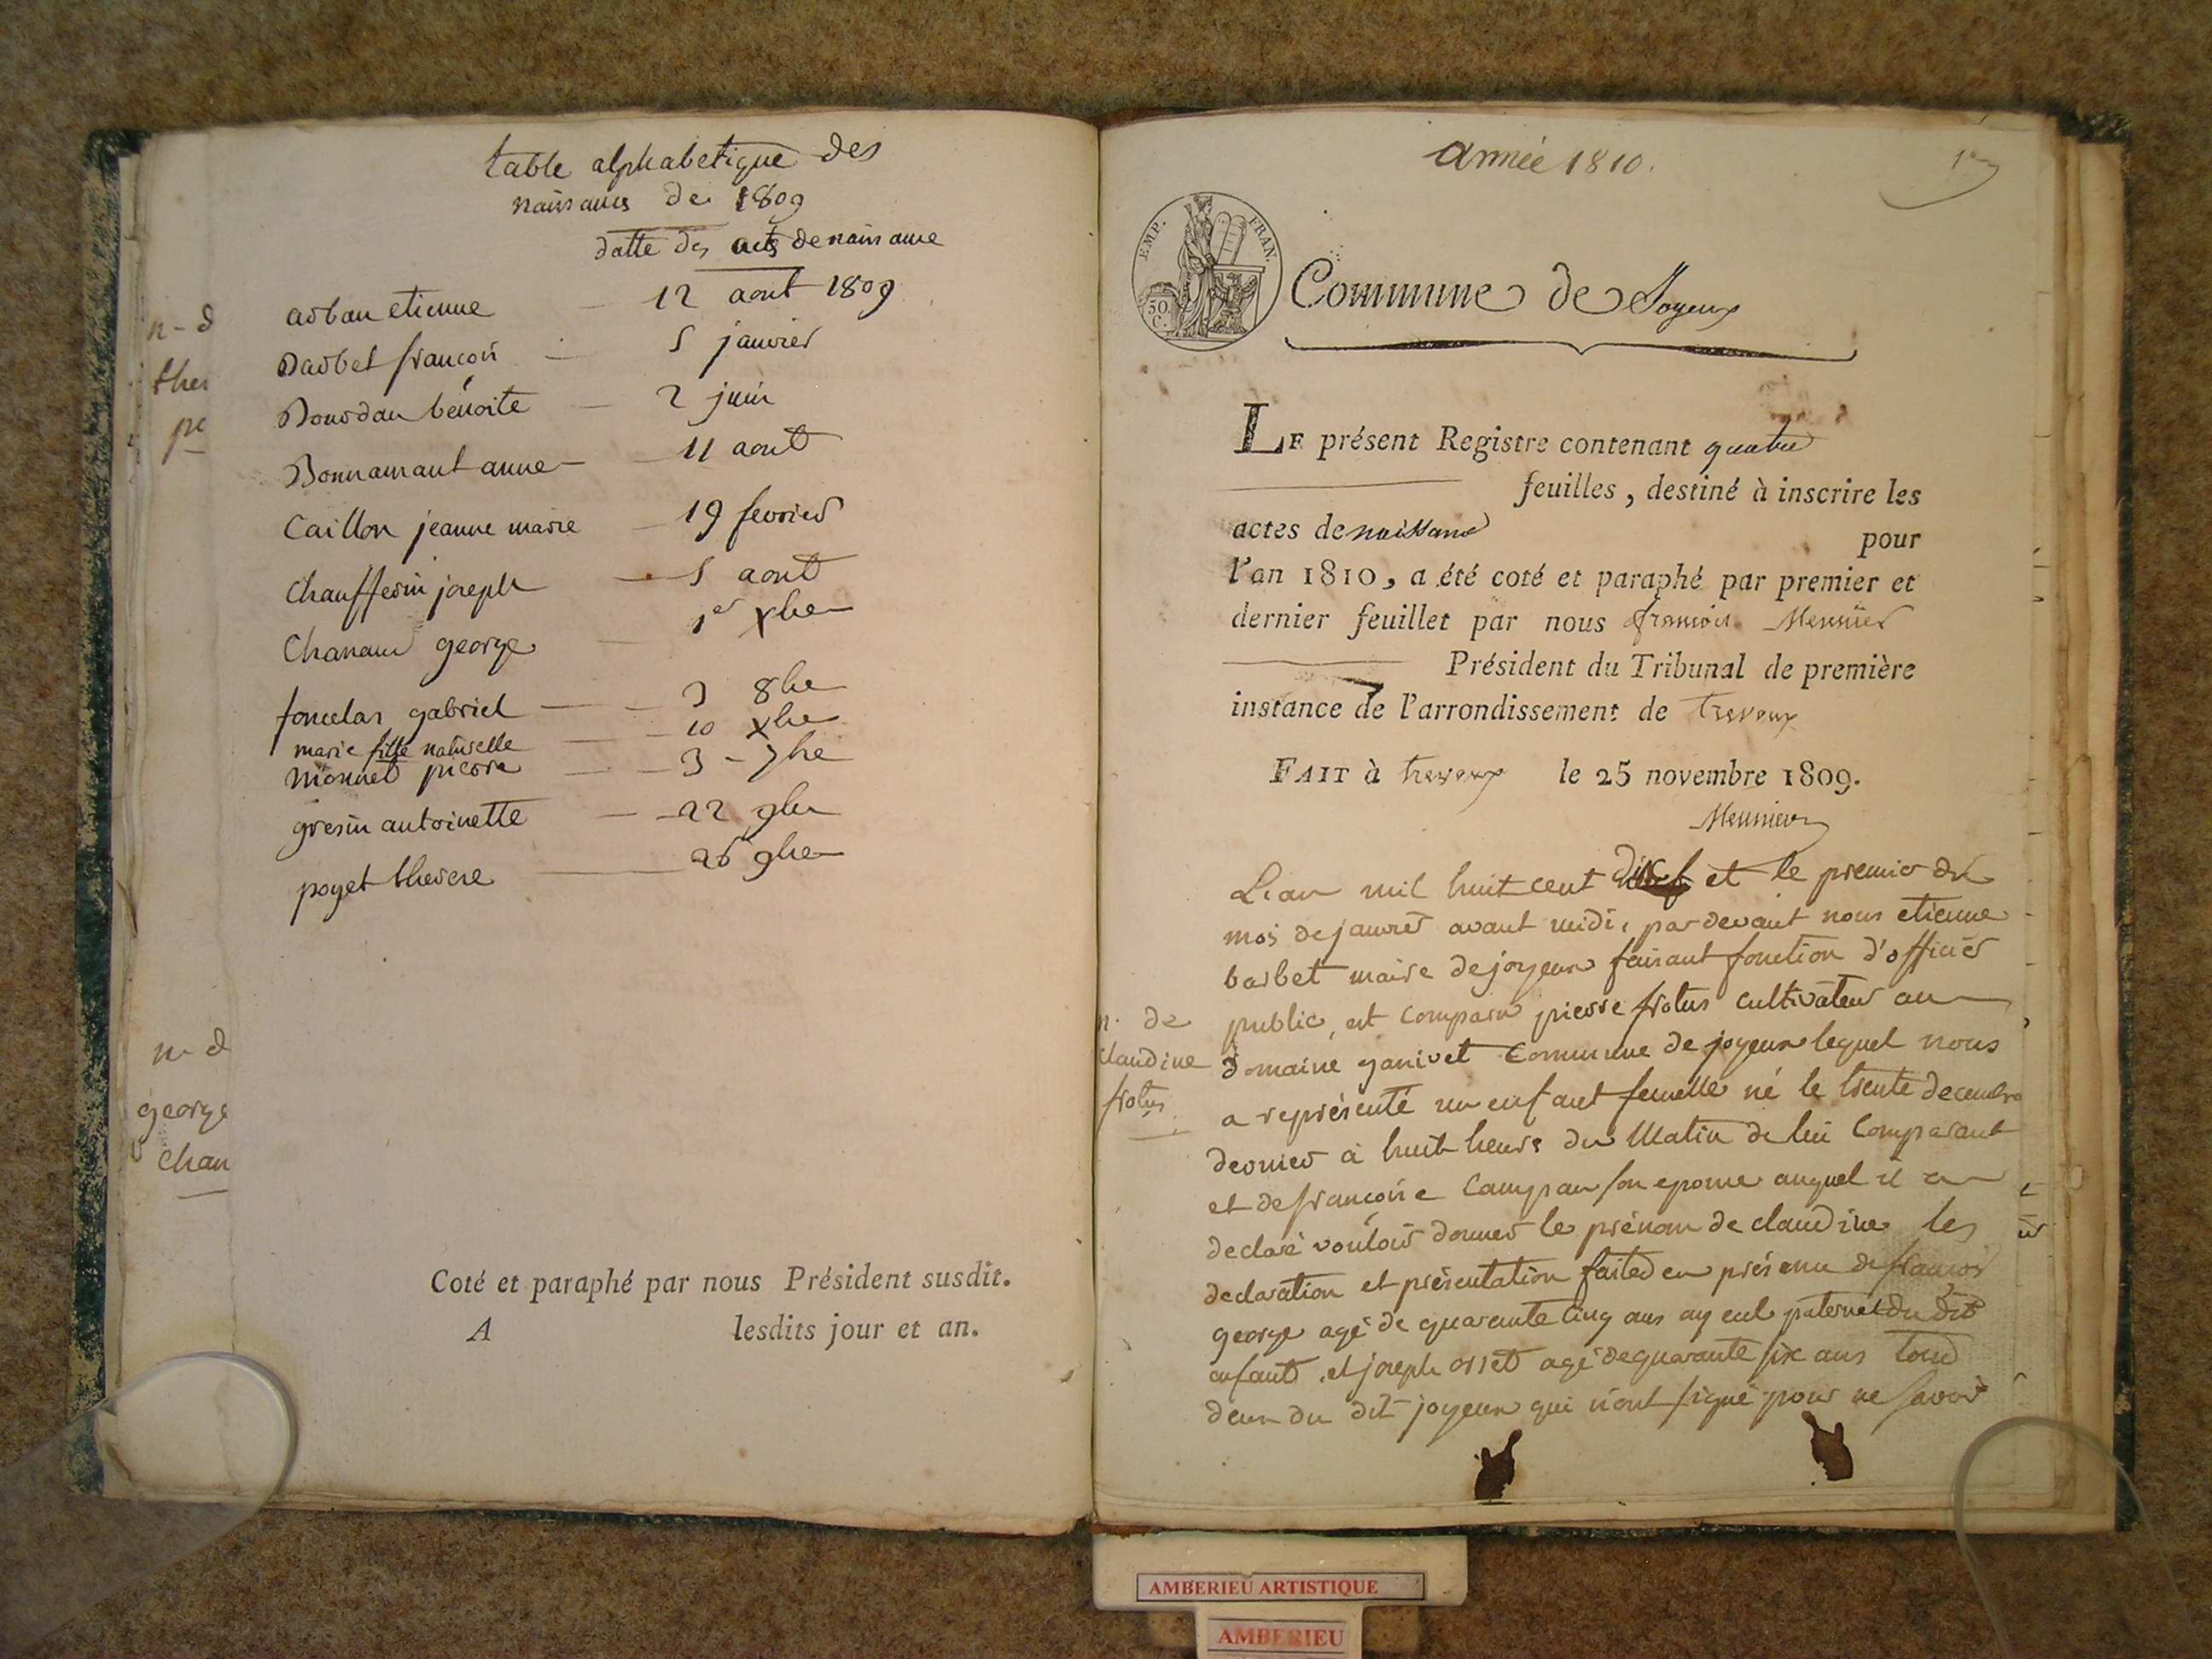 table alphabetique des
naissances de 1809
datte des acts de naissance
arban etienne 12 aout 1809
barbet francois 5 janvier
bourdan benoite 2 juin
bonnamant anne 11 aout
Caillon jeanne marie 19 fevrier
Chaufferin joseph 5 aout
Chanaud george 1er xbre
foncelas gabriel 3 8bre
marie fille naturelle 10 xbre
monnet pierre 3 - 7bre
gresin antoinette 22 9bre
poyet therese 26 9bre
Coté et paraphé par nous Président susdit.
A lesdits jour et an.
n - d
ther
n - d
george
chan
année 1810.
1er
EMP. FRAN.
50. C.
Commune de Joyeux
LE présent Registre contenant quatre
feuilles, destiné à inscrire les
actes de naissance pour
l'an 1810, a été coté et paraphé par premier et
dernier feuillet par nous françois Meunier
Président du Tribunal de première
instance de l'arrondissement de trevoux
FAIT à trevoux le 25 novembre 1809.
Meunier
L'an mil huit cent dix et le premier du
mois de janvier avant midi, par devant nous etienne
barbet maire de joyeux faisant fonction d'officier
public, est comparu pierre frotus cultivateur au
domaine ganivet Commune de joyeux lequel nous
a représenté un enfant femelle né le trente decembre
dernier à huit heures du Matin de lui Comparant
et de francoise Campan son epouse auquel il a
declaré vouloir donner le prénom de claudine les
declaration et présentation faites en présence de francois
george agé de quarante cinq ans ayeul paternel du dit
enfant, et joseph orset agé de quarante six ans tous
deux du dit joyeux qui n'ont signé pour ne savoir
n. de
claudine
frotus
AMBERIEU ARTISTIQUE
AMBERIEU